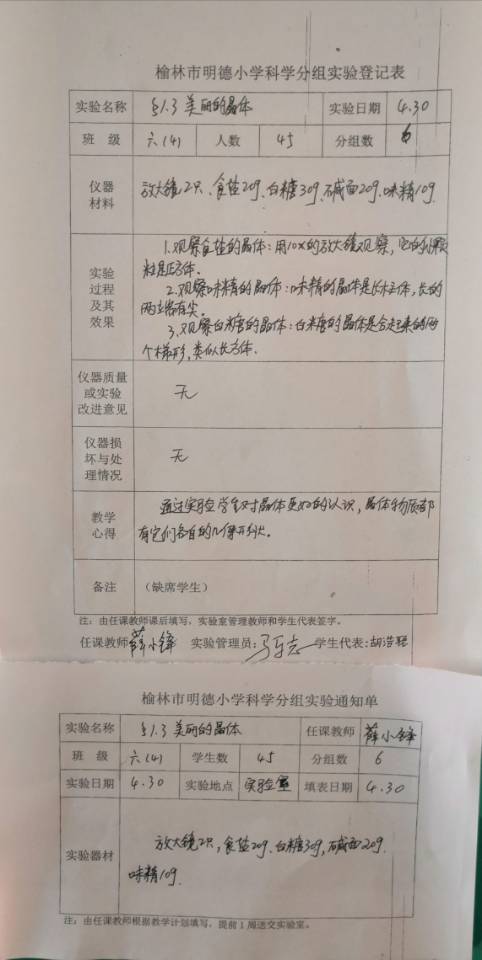 榆林市明德小学科学分组实验登记表
实验名称 §1.3 美丽的晶体 实验日期 4.30
班 级 六(4) 人数 45 分组数 6
仪器材料 放大镜12只、食盐20g、白糖30g、碱面20g、味精10g
实验过程及其效果
1.观察食盐的晶体：用10x的放大镜观察，它的颗
粒是正方体.
2.观察味精的晶体：味精的晶体是长柱体，长的
两端有尖.
3.观察白糖的晶体：白糖的晶体是合起来的两
个梯形，类似长方体.
仪器质量或实验改进意见 无
仪器损坏与处理情况 无
教学心得
通过实验学生对晶体更好的认识，晶体物质都
有它们各自的几何形状.
备注 (缺席学生)
注：由任课教师课后填写，实验室管理教师和学生代表签字。
任课教师 薛小锋 实验管理员: 学生代表:胡浩
榆林市明德小学科学分组实验通知单
实验名称 §1.3 美丽的晶体 任课教师 薛小锋
班 级 六(4) 学生数 45 分组数 6
实验日期 4.30 实验地点 实验室 填表日期 4.30
实验器材
放大镜12只，食盐20g，白糖30g，碱面20g
味精10g.
注：由任课教师根据教学计划填写，提前1周送交实验室。